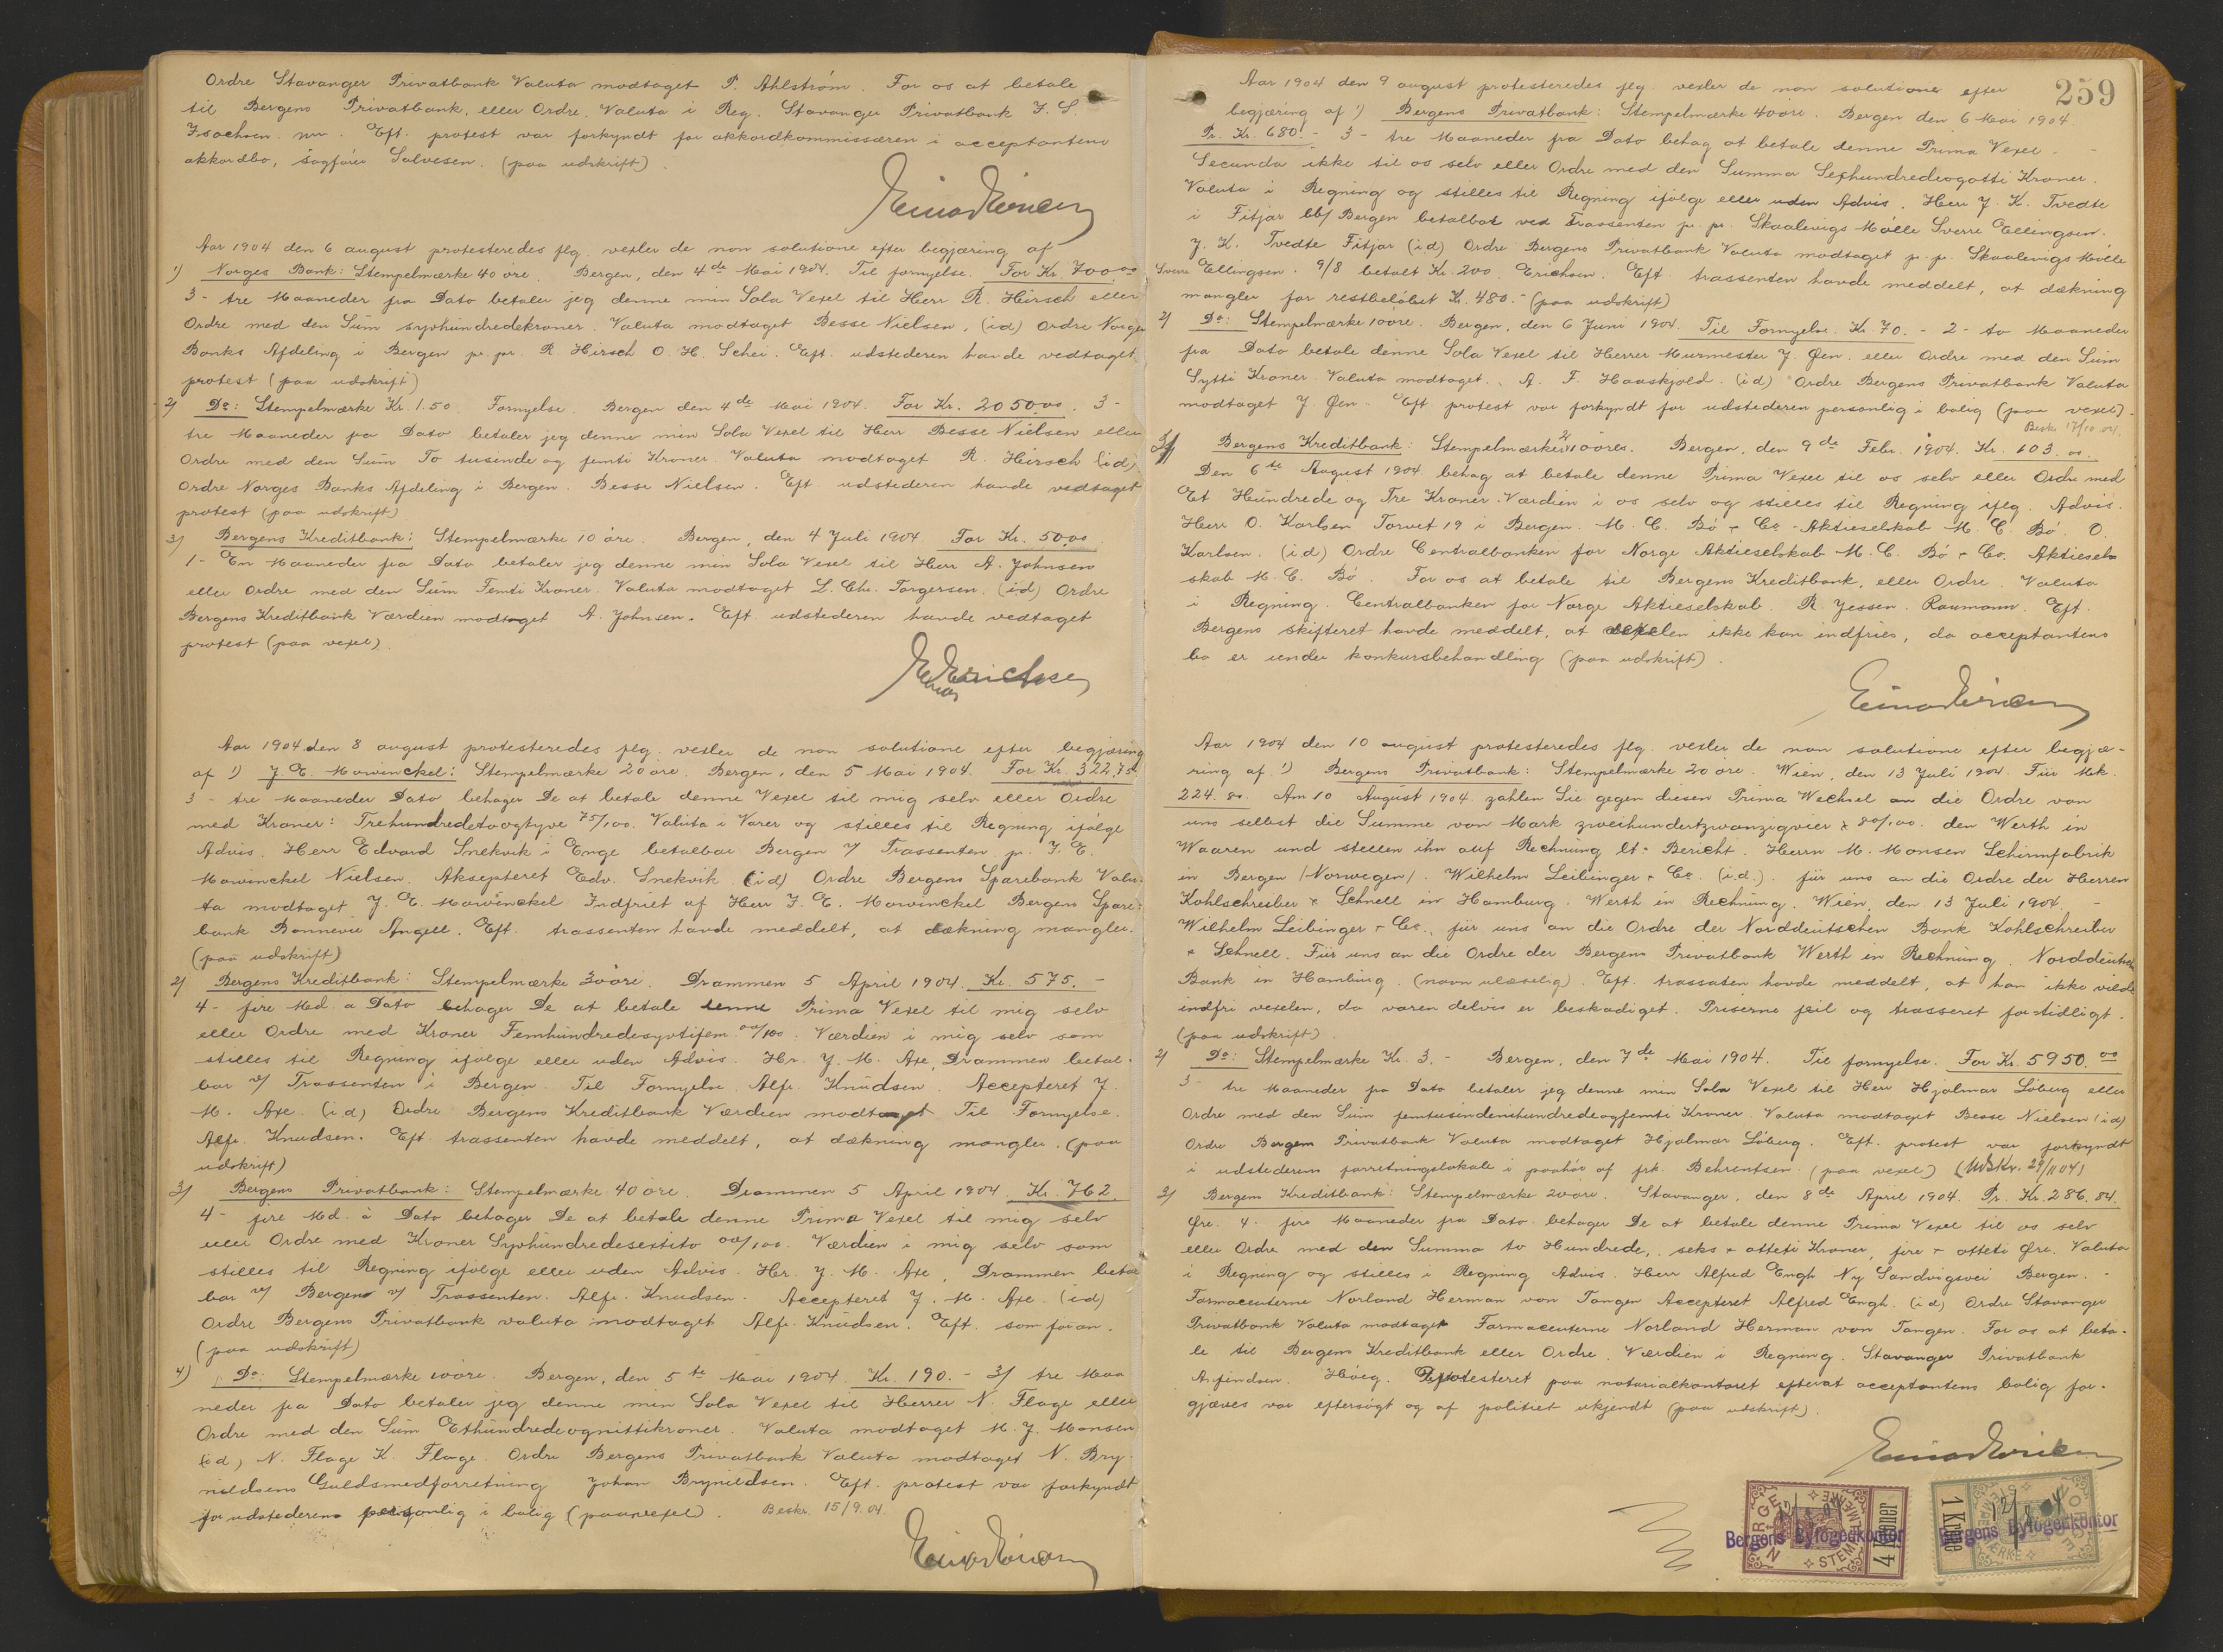 Ordre Stavanger Privatbank Valuta modtaget P. Ahlstrøm. For os at betale
til Bergens Privatbank, eller Ordre. Valuta i Reg. Stavanger Privatbank J. S.
Isachsen. nn. Eft. protest var forkyndt for akkordkommissæren i acceptantens
akkordbo, sagfører Salvesen. (paa udskrift).
Aar 1904 den 6 august protesteredes flg. vexler de non solutione efter begjæring af
1) Norges Bank: Stempelmærke 40 øre. Bergen, den 4de Mai 1904. Til fornyelse. For Kr. 700.00
3- tre Maaneder fra Dato betaler jeg denne min Sola Vexel til Herr R. Hirsch eller
Ordre med den Sum syvhundredekroner. Valuta modtaget Besse Nielsen, (id) Ordre Norges
Banks Afdeling i Bergen pr. pr. R. Hirsch O. H. Schei. Eft. udstederen havde vedtaget
protest (paa udskrift)
2) Do: Stempelmærke Kr. 1.50. Fornyelse. Bergen den 4de Mai 1904. For Kr. 2050.00. 3-
tre Maaneder fra Dato betaler jeg denne min Sola Vexel til Herr Besse Nielsen eller
Ordre med den Sum To tusinde og femti Kroner. Valuta modtaget R. Hirsch (id)
Ordre Norges Banks Afdeling i Bergen. Besse Nielsen. Eft. udstederen havde vedtaget
protest (paa udskrift)
3) Bergens Kreditbank: Stempelmærke 10 øre. Bergen, den 4 Juli 1904 For Kr. 50.00
1- En Maaneder fra Dato betaler jeg denne min Sola Vexel til Herr A. Johnsen
eller Ordre med den Sum Femti Kroner. Valuta modtaget L. Chr. Torgersen. (id) Ordre
Bergens Kreditbank Værdien modtaget A. Johnsen. Eft. udstederen havde vedtaget
protest (paa vexel).
Aar 1904 den 8 august protesteredes flg. vexler de non solutione efter begjæring
af 1) J. E. Mowinckel: Stempelmærke 20 øre. Bergen, den 5 Mai 1904. For Kr. 322,75.
3- tre Maaneder Dato behager De at betale denne Vexel til mig selv eller Ordre
med Kroner: Trehundredetoogtyve 75/100. Valuta i Varer og stilles til Regning ifølge
Advis. Herr Edvard Snekvik i Enge betalbar Bergen v/ Trassenten p. J. E.
Mowinckel Nielsen. Aksepteret Edv. Snekvik. (id) Ordre Bergens Sparebank Valu-
ta modtaget J. E. Mowinckel Indfriet af Herr J. E. Mowinckel Bergens Spare-
bank Bonnevie Angell. Eft. trassenten havde meddelt, at dækning mangler.
(paa udskrift)
2) Bergens Kreditbank: Stempelmærke 30 øre. Drammen 5 April 1904. Kr. 575.-
4- fire Md. a Dato behager De at betale denne Prima Vexel til mig selv
eller Ordre med Kroner Femhundredesyvtifem 00/100. Værdien i mig selv som
stilles til Regning ifølge eller uden Advis. Hr. J. M. Axe, Drammen betal-
bar v/ Trassenten i Bergen. Til Fornyelse. Alfr. Knudsen. Accepteret J.
M. Axe. (id) Ordre Bergens Kreditbank Værdien modtaget Til Fornyelse.
Alfr. Knudsen. Eft. trassenten havde meddelt, at dækning mangler. (paa
udskrift)
3) Bergens Privatbank: Stempelmærke 40 øre. Drammen 5 April 1904. Kr. 762.
4- fire Md. à Dato behager De at betale denne Prima Vexel til mig selv
eller Ordre med Kroner Syvhundredesextito 00/100. Værdien i mig selv som
stilles til Regning ifølge eller uden Advis. Hr. J. M. Axe, Drammen betal
bar v/ Bergens v/ Trassenten. Alfr. Knudsen. Accepteret J. M. Axe. (id)
Ordre Bergens Privatbank valuta modtaget Alfr. Knudsen. Eft. som foran.
(paa udskrift)
4) Do: Stempelmærke 10 øre. Bergen, den 5te Mai 1904. Kr. 190.- 3/ tre Maa
neder fra Dato betaler jeg denne min Sola Vexel til Herrer N. Flage eller
Ordre med den Sum Ethundredeognittikroner. Valuta modtaget M. J. Monsen
(id) N. Flage K. Flage. Ordre Bergens Privatbank Valuta modtaget N. Bry-
nildsens Guldsmedforretning Johan Brynildsen. Eft. protest var forkyndt
for udstederens personlig i bolig (paa vexel). Beskr. 15/9.04.
259
Aar 1904 den 9 august protesteredes flg. vexler de non solutione efter
begjæring af 1) Bergens Privatbank: Stempelmærke 40 øre. Bergen den 6 Mai 1904.
Pr. Kr. 680.- 3- tre Maaneder fra Dato behag at betale denne Prima Vexel-
Secunda ikke til os selv eller Ordre med den Summa Sexhundredeogotti Kroner.
Valuta i Regning og stilles til Regning ifølge eller uden Advis. Herr J. K. Tvedte
i Fitjar bb/ Bergen betalbar ved Trassenten pr. pr. Skaalevigs Mølle Sverre Ellingsen.
J. K. Tvedte Fitjar (id) Ordre Bergens Privatbank Valuta modtaget p. p. Skaalevigs Mølle
Sverre Ellingsen. 9/8 betalt Kr. 200. Erichsen. Eft. trassenten havde meddelt, at dækning
mangler for restbeløbet Kr. 480.- (paa udskrift)
2) Do: Stempelmærke 10 øre. Bergen, den 6 Juni 1904. Til Fornyelse. Kr. 70.- 2- to Maaneder
fra Dato betale denne Sola Vexel til Herrer Murmester J. Øen. eller Ordre med den Sum
Sytti Kroner. Valuta modtaget. A. F. Haaskjold. (id) Ordre Bergens Privatbank Valuta
modtaget J. Øen. Eft. protest var forkyndt for udstederen personlig i bolig (paa vexel).
Beskr. 17/10.04.
3) Bergens Kreditbank: Stempelmærker 2/ 10 øres. Bergen, den 9de Febr. 1904. Kr. 103.00.
Den 6te August 1904 behag at betale denne Prima Vexel til os selv eller Ordre med
Et Hundrede og Tre Kroner. Værdien i os selv og stilles til Regning iflg. Advis.
Herr O. Karlsen Torvet 19 i Bergen. M. C. Bø & Co - Aktieselskab M. C. Bø. O.
Karlsen. (id) Ordre Centralbanken for Norge Aktieselskab M. C. Bø & Co. Aktiesels
skab M. C. Bø. For os at betale til Bergens Kreditbank, eller Ordre. Valuta
i Regning. Centralbanken for Norge Aktieselskab. R. Jessen. Raumann. Eft.
Bergens skifteret havde meddelt, at vexelen ikke kan indfries, da acceptantens
bo er under konkursbehandling (paa udskrift).
Aar 1904 den 10 august protesteredes flg. vexler de non solutione efter begjæ-
ring af 1) Bergens Privatbank: Stempelmærke 20 øre. Wien, den 13 Juli 1904. Für Mk.
224.80. Am 10 August 1904 zahlen Sie gegen diesen Prima Wechsel an die Ordre von
uns selbst die Summe von Mark zweihundertzwanzigvier & 80/100. den Werth in
Waaren und stellen ihn auf Rechnung lt. Bericht. Herrn M. Monsen Schirmfabrik
in Bergen /Norwegen/. Wilhelm Leibinger & Co. (i.d.) für uns an die Ordre der Herren
Kohlschreiber & Schnell in Hamburg. Werth in Rechnung. Wien, den 13 Juli 1904.-
Wilhelm Leibinger & Co., für uns an die Ordre der Norddeutschen Bank Kohlschreiber
& Schnell. Für uns an die Ordre der Bergens Privatbank Werth in Rechnung. Norddeutsche
Bank in Hamburg. (navn ulæselig). Eft. trassaten havde meddelt, at han ikke vilde
indfri vexelen, da varen delvis er beskadiget. Priserne feil og trasseret for tidligt.
(paa udskrift).
2) Do: Stempelmærke Kr. 3.- Bergen, den 7de Mai 1904. Til fornyelse. For Kr. 5950.00
3- tre Maaneder fra Dato betaler jeg denne min Sola Vexel til Herr Hjalmar Løberg eller
Ordre med den Sum femtusindenihundredeogfemti Kroner. Valuta modtaget Besse Nielsen (id)
Ordre Bergens Privatbank Valuta modtaget Hjalmar Løberg. Eft. protest var forkyndt
i udstederens forretningslokale i paahør af frk. Behrentsen. (paa vexel) (Udskr. 29/11 04)
3) Bergens Kreditbank: Stempelmærke 20 øre. Stavanger, den 8de April 1904. Pr. Kr. 286.84.
Øre. 4- fire Maaneder fra Dato behager De at betale denne Prima Vexel til os selv
eller Ordre med den Summa to Hundrede, seks & otteti Kroner, fire & otteti Øre. Valuta
i Regning og stilles i Regning Advis. Herr Alfred Engh Ny Sandvigsvei Bergen.-
Farmaceuterne Norland Herman von Tangen Accepteret Alfred Engh. (id) Ordre Stavanger
Privatbank Valuta modtaget Farmaceuterne Norland Herman von Tangen. For os at beta-
le til Bergens Kreditbank eller Ordre. Værdien i Regning. Stavanger Privatbank
Arfindsen. Høeg. Protesteret paa notarialkontoret efterat acceptantens bolig for-
gjæves var eftersøgt og af politiet ukjendt (paa udskrift).
NORGE STEMPELMÆRKE 4 Kroner
Bergens Byfogedkontor
1 Krone
Bergens Byfogedkontor